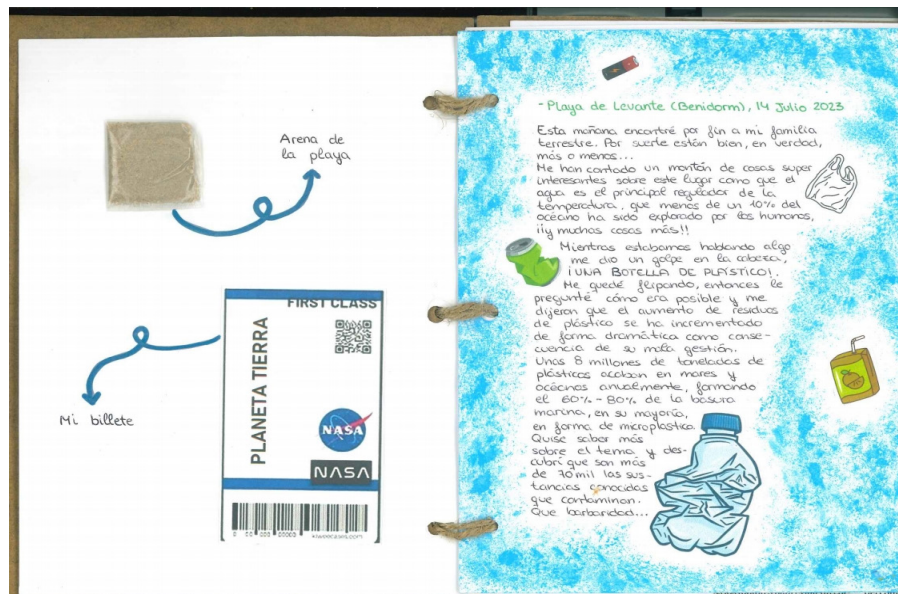 Arena de
la playa
FIRST CLASS
PLANETA TIERRA
NASA
NASA
Mi billete
- Playa de Levante (Benidorm), 14 Julio 2023
Esta mañana encontré por fin a mi familia
terrestre. Por suerte están bien, en verdad,
más o menos...
Me han contado un montón de cosas super
interesantes sobre este lugar como que el
agua es el principal regulador de la
temperatura, que menos de un 10% del
océano ha sido explorado por los humanos,
¡¡y muchas cosas más!!
Mientras estabamos hablando algo
me dio un golpe en la cabeza,
¡UNA BOTELLA DE PLÁSTICO!.
Me quedé flipando, entonces le
pregunté cómo era posible y me
dijeron que el aumento de residuos
de plástico se ha incrementado
de forma dramática como conse-
cuencia de su mala gestión.
Unas 8 millones de toneladas de
plásticos acaban en mares y
océanos anualmente, formando
el 60% - 80% de la basura
marina, en su mayoría,
en forma de microplastico.
Quise saber más
sobre el tema y des-
cubrí que son más
de 70 mil las sus-
tancias conocidas
que contaminan.
Que barbaridad...